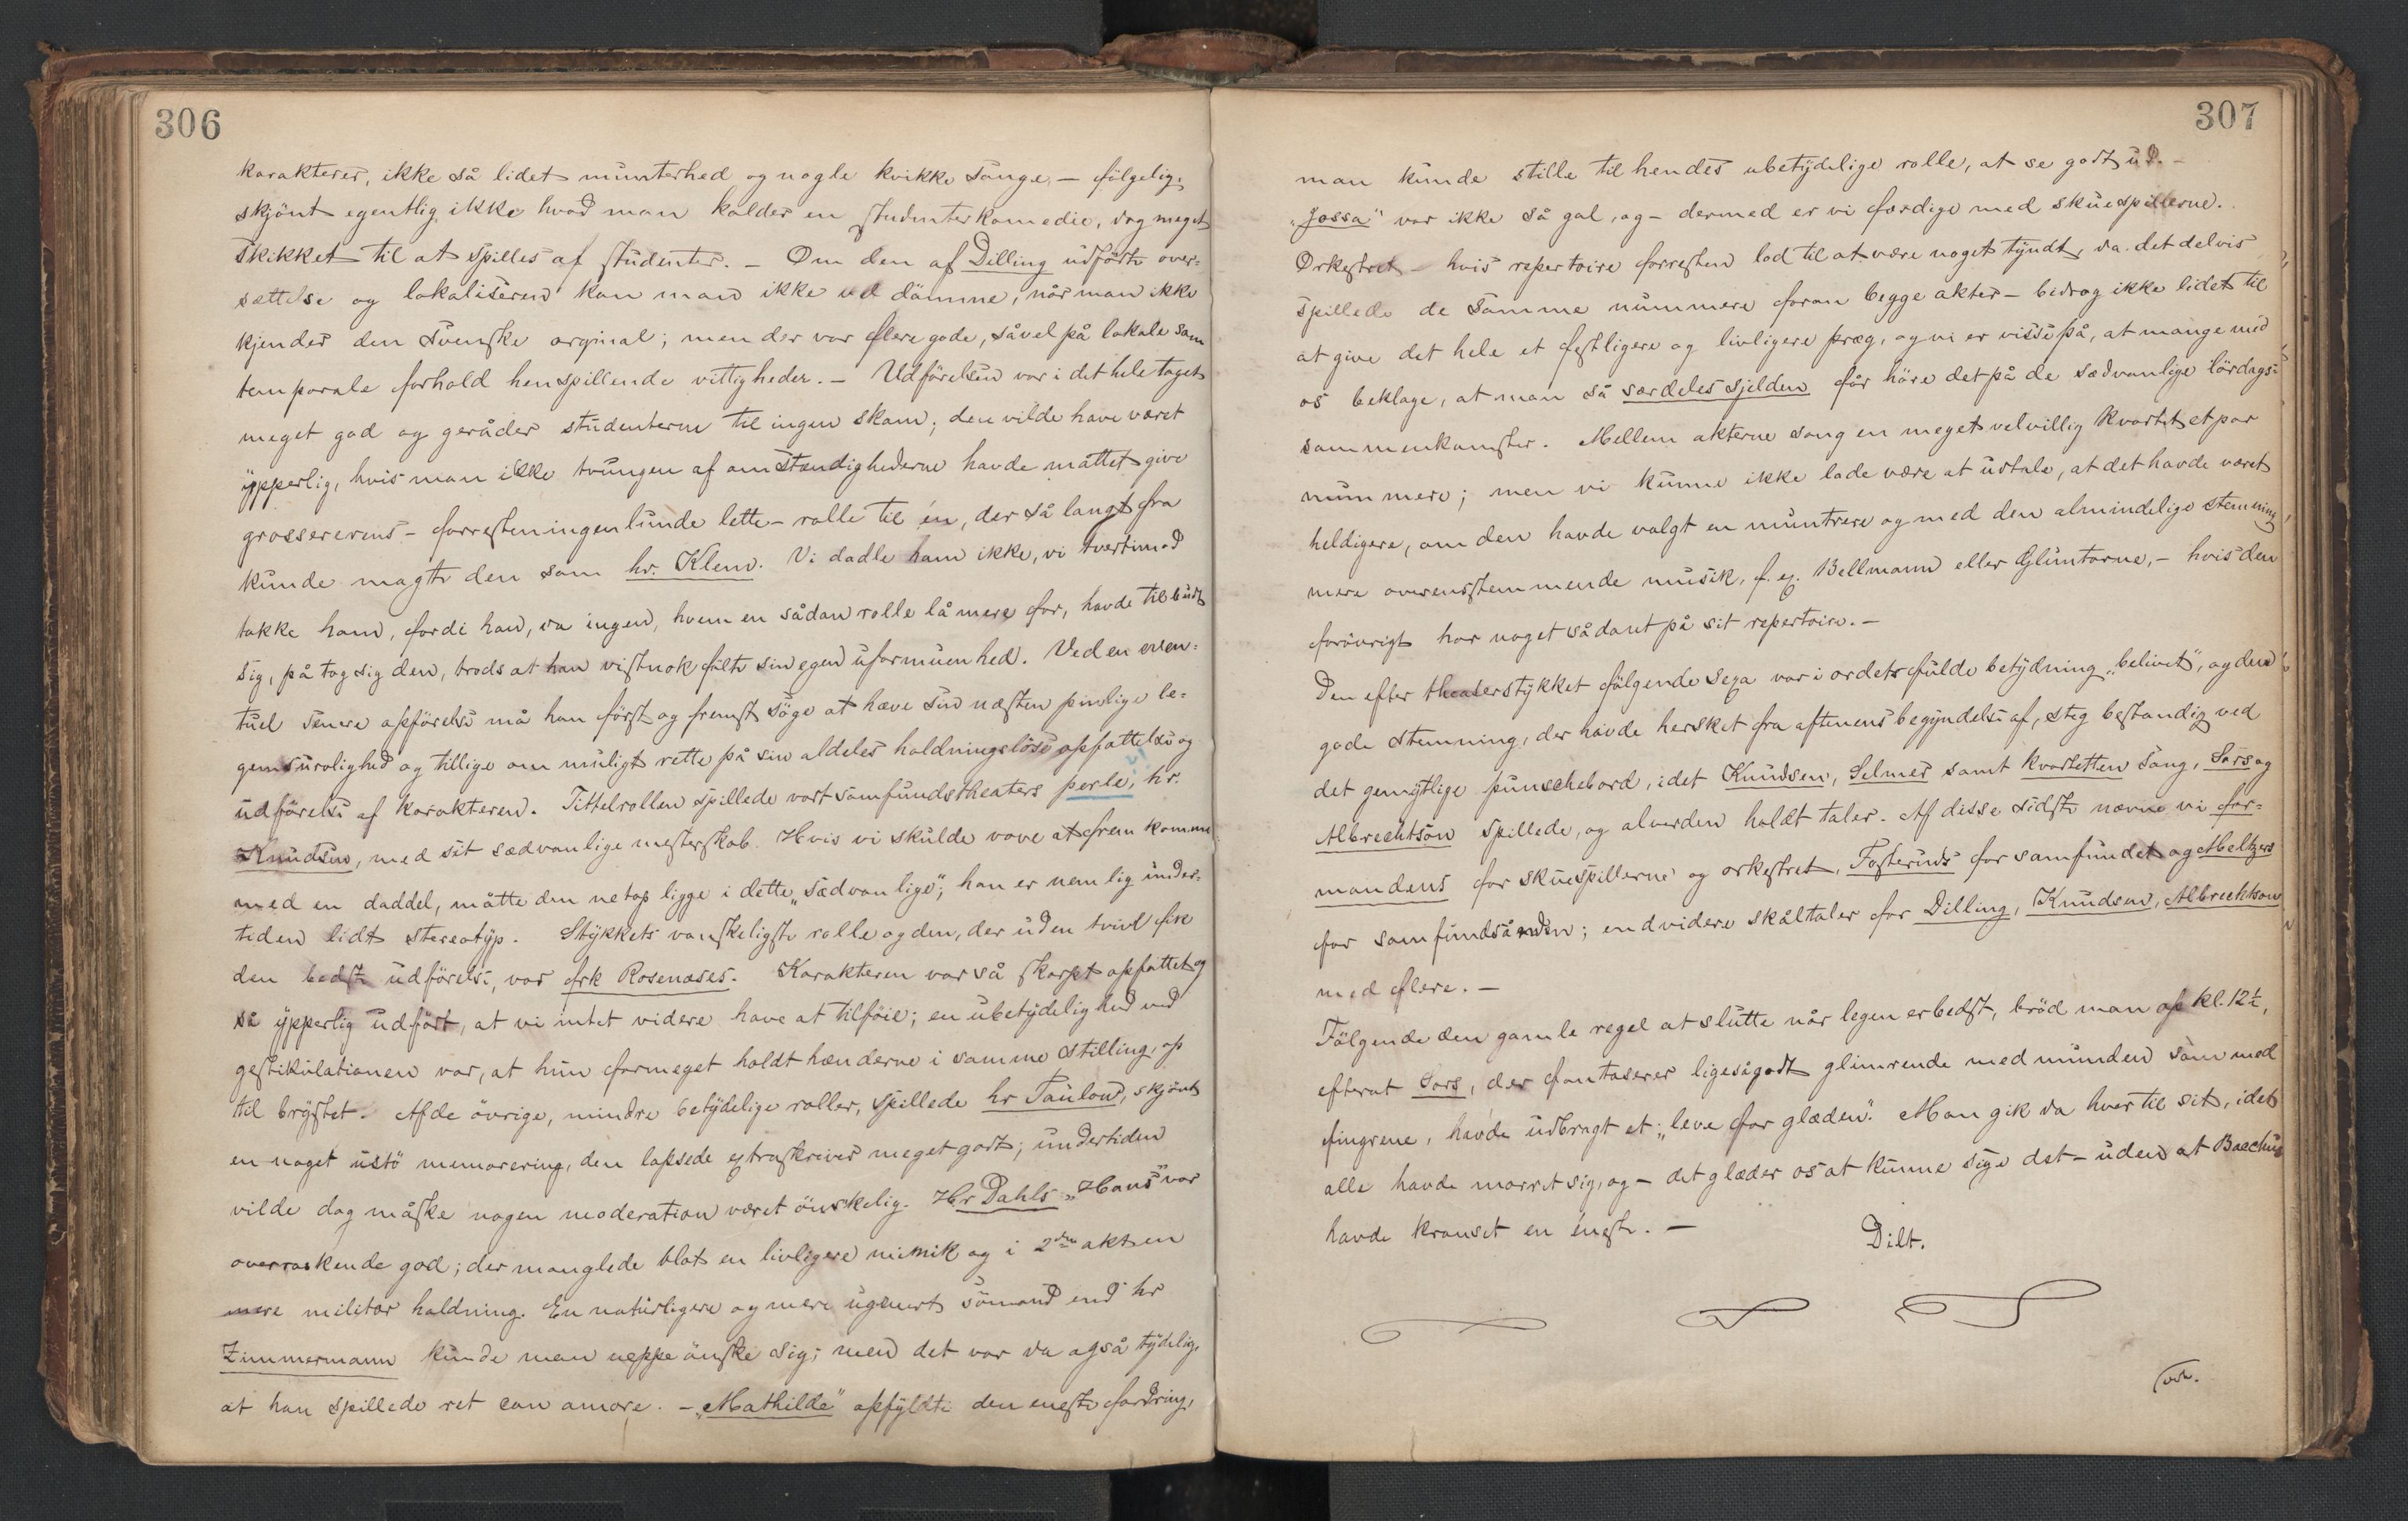 306
karakterer, ikke så lidet munterhed og nogle kvikke sange, — følgelig,
skjönt egentlig ikke hvad man kalder en studenterkomedie, dog meget
skikket til at spilles af studenter. — Om den af Dilling udförte over-
sættelse og lokaliseren kan man ikke vel dömme, når man ikke
kjender den svenske orginal; men der var flere gode, såvel på lokale som
temporale forhold henspillende vittigheder. — Udförelsen var i det hele taget
meget god og geråder studenterne til ingen skam; den vilde have været
ypperlig, hvis man ikke tvungen af omstændighederne havde måttet give
grossererens - forresten ingenlunde lette - rolle til én, der så langt fra
kunde magte den som hr. Klem. Vi dadle ham ikke, vi tvertimod
takke ham, fordi han, da ingen, hvem en sådan rolle lå mere for, havde tilbudt
sig, påtog sig den, trods at han vistnok fölte sin egen uformuenhed. Ved en even-
tuel senere opförelse må han först og fremst söge at hæve sin næsten pinlige le-
gemsurolighed og tillige om muligt rette på sin aldeles holdningslöse opfattelse og
udförelse af karakteren. Tittelrollen spillede vort samfundstheaters perle, hr.
Knudsen, med sit sædvanlige mesterskab. Hvis vi skulde vove at fremkomme
med en daddel, måtte den netop ligge i dette „sædvanlige“; han er nemlig under-
tiden lidt stereotyp. Stykkets vanskeligste rolle og den, der uden tvivl fik
den bedste udförelse, var frk Rosenases. Karakteren var så skarpt opfattet og
så ypperlig udfört, at vi intet videre have at tilföie; en ubetydelighed ved
gestikulationen var, at hun formeget holdt hænderne i samme stilling, op
til brystet. Af de övrige, mindre betydelige roller, spillede hr Taulow, skjönt
en noget ustö memorering, den lapsede extraskriver meget godt; undertiden
vilde dog måske nogen moderation været önskelig. Hr Dahls „Hans“ var
overraskende god; der manglede blot en livligere mimik og i 2den akt en
mere militær holdning. En naturligere og mere ugenert sömand end hr
Zimmermann kunde man neppe önske sig; men det var da også tydelig,
at han spillede ret con amore. — „Mathilde“ opfyldte den eneste fordring,
307
man kunde stille til hendes ubetydelige rolle, at se godt ud. -
„Jossa“ var ikke så gal, og - dermed er vi færdige med skuespillerne.
Orkestret - hvis repertoire forresten lod til at være noget tyndt, da det delvis
spillede de samme nummere foran begge akter - bidrog ikke lidet til
at give det hele et festligere og livligere præg, og vi er visse på, at mange med
os beklage, at man så særdeles sjelden får höre det på de sædvanlige lördags-
sammenkomster. Mellem akterne sang en meget velvillig kvartet et par
nummere; men vi kunne ikke lade være at udtale, at det havde været
heldigere, om den havde valgt en muntrere og med den almindelige stemning
mere overensstemmende musik, f. ex. Bellmann eller Gluntarne, - hvis den
forövrigt har noget sådant på sit repertoire. —
Den efter theaterstykket fölgende sexa var i ordets fulde betydning „belivet“, og den
gode stemning, der havde hersket fra aftenens begyndelse af, steg bestandig ved
det gemytlige punschebord, idet Knudsen, Selmer samt kvartetten sang, Sars og
Albrechtson spillede, og alverden holdt taler. Af disse sidste nævne vi for-
mandens for skuespillerne og orkestret, Fosteruds for samfundet og Meltzers
for samfundsånden; endvidere skåltaler for Dilling, Knudsen, Albrechtson
med flere. —
Fölgende den gamle regel at slutte når legen er bedst, bröd man op kl. 12½,
efterat Sars, der fantaserer ligesågodt glimrende med munden som med
fingrene, havde udbragt et: „leve for glæden“. Man gik da hver til sit, idet
alle havde morret sig, og - det glæder os at kunne sige det - uden at Bacchus
havde kranset en énest. —
Dilt.